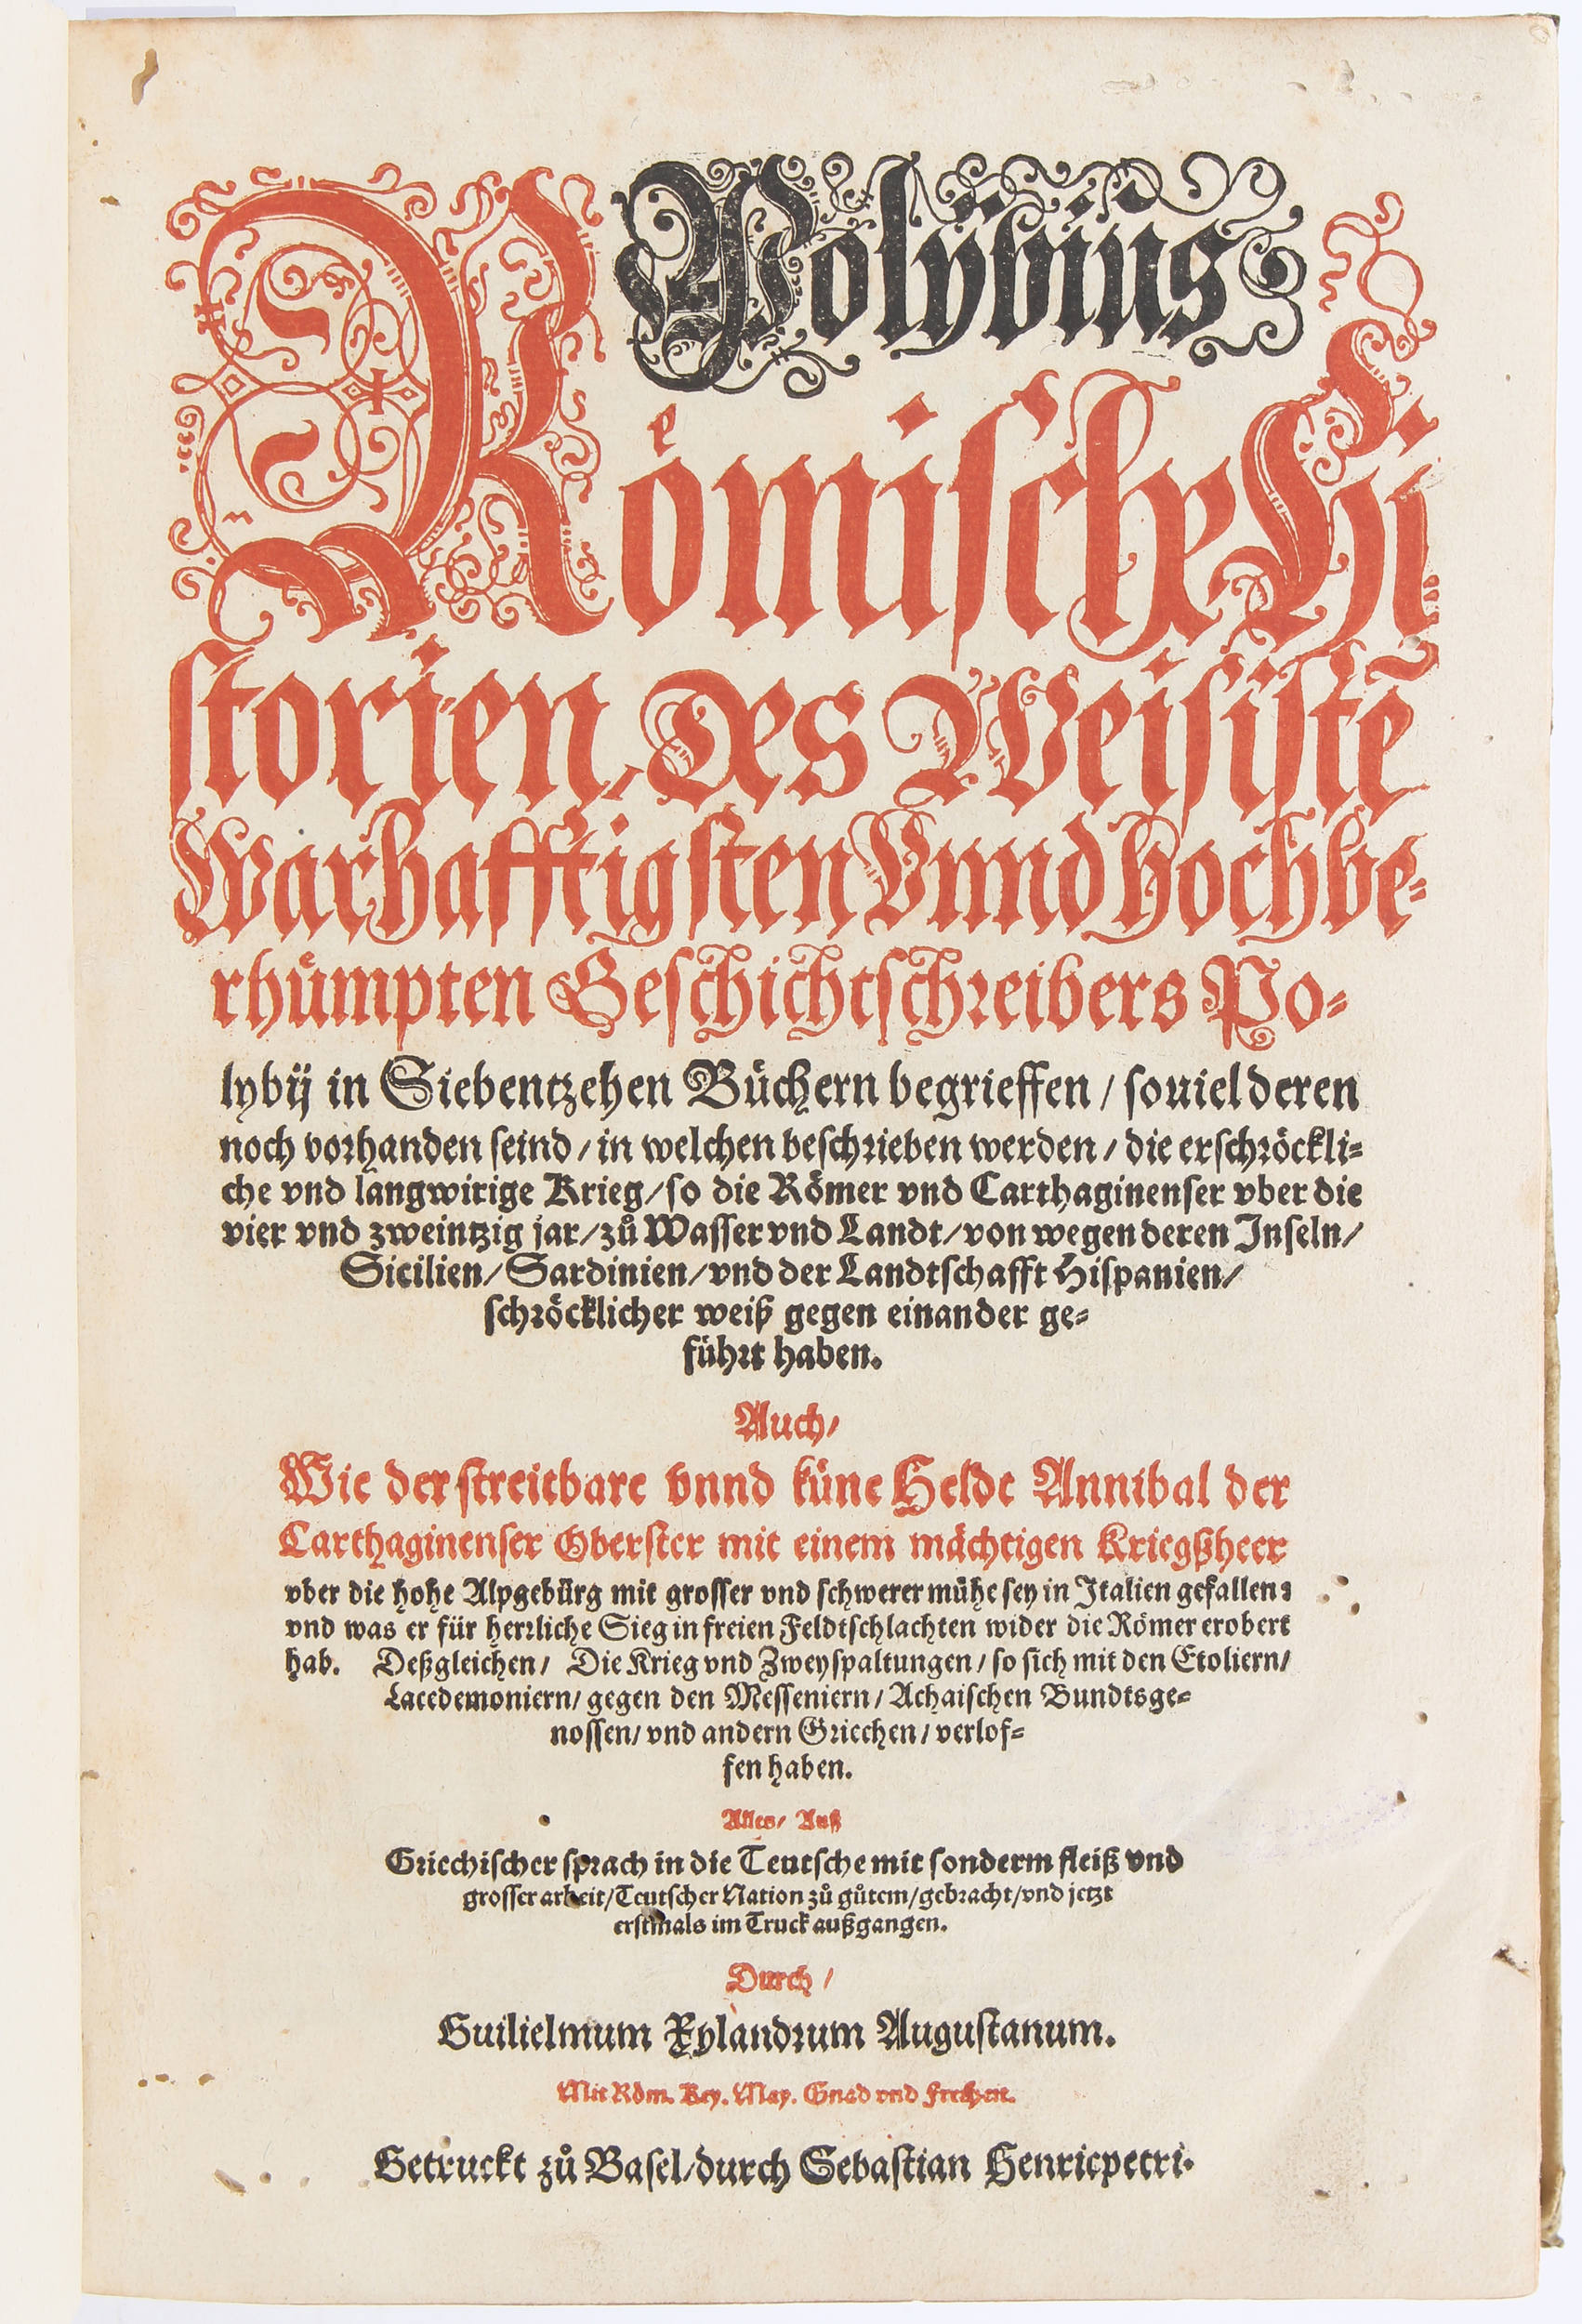 Polybius
Roͤmische Hi
storien, des Weisistē
Warhafftigsten Vnnd hochbe⸗
rhuͤmpten Geschichtschreibers Po⸗
lybij in Siebentzehen Buͤchern begrieffen / souiel deren
noch vorhanden seind / in welchen beschrieben werden / die erschroͤckli⸗
che vnd langwirige Krieg / so die Roͤmer vnd Carthaginenser vber die
vier vnd zweintzig jar / zuͦ Wasser vnd Landt / von wegen deren Inseln /
Sicilien / Sardinien / vnd der Landtschafft Hispanien /
schroͤcklicher weiß gegen einander ge⸗
fuͤhrt haben.
Auch /
Wie der streitbare vnnd kuͤne Heldt Annibal der
Carthaginenser Oberster mit einem maͤchtigen Kriegßheer
vber die hohe Alpgebuͤrg mit grosser vnd schwerer muͤhe sey in Italien gefallen:
vnd was er fuͤr herrliche Sieg in freien Feldtschlachten wider die Roͤmer erobert
hab. Deßgleichen / Die Krieg vnd Zweyspaltungen / so sich mit den Etoliern /
Lacedemoniern / gegen den Messeniern / Achaischen Bundtsge⸗
nossen / vnd andern Griechen / verlof⸗
fen haben.
Alles / Auß
Griechischer sprach in die Teutsche mit sonderm fleiß vnd
grosser arbeit / Teutscher Nation zuͦ guͦtem / gebracht / vnd jetzt
erstmals im Truck außgangen.
Durch /
Guilielmum Xylandrum Augustanum.
Mit Roͤm. Key. May. Gnad vnd Freyheit.
Getruckt zuͦ Basel / durch Sebastian Henricpetri.